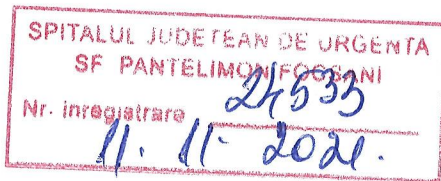 SPITALUL JUDETEAN DE URGENTA
SF PANTELIMON FOCSANI
Nr. inregistrare 24533
11. 11. 2021.